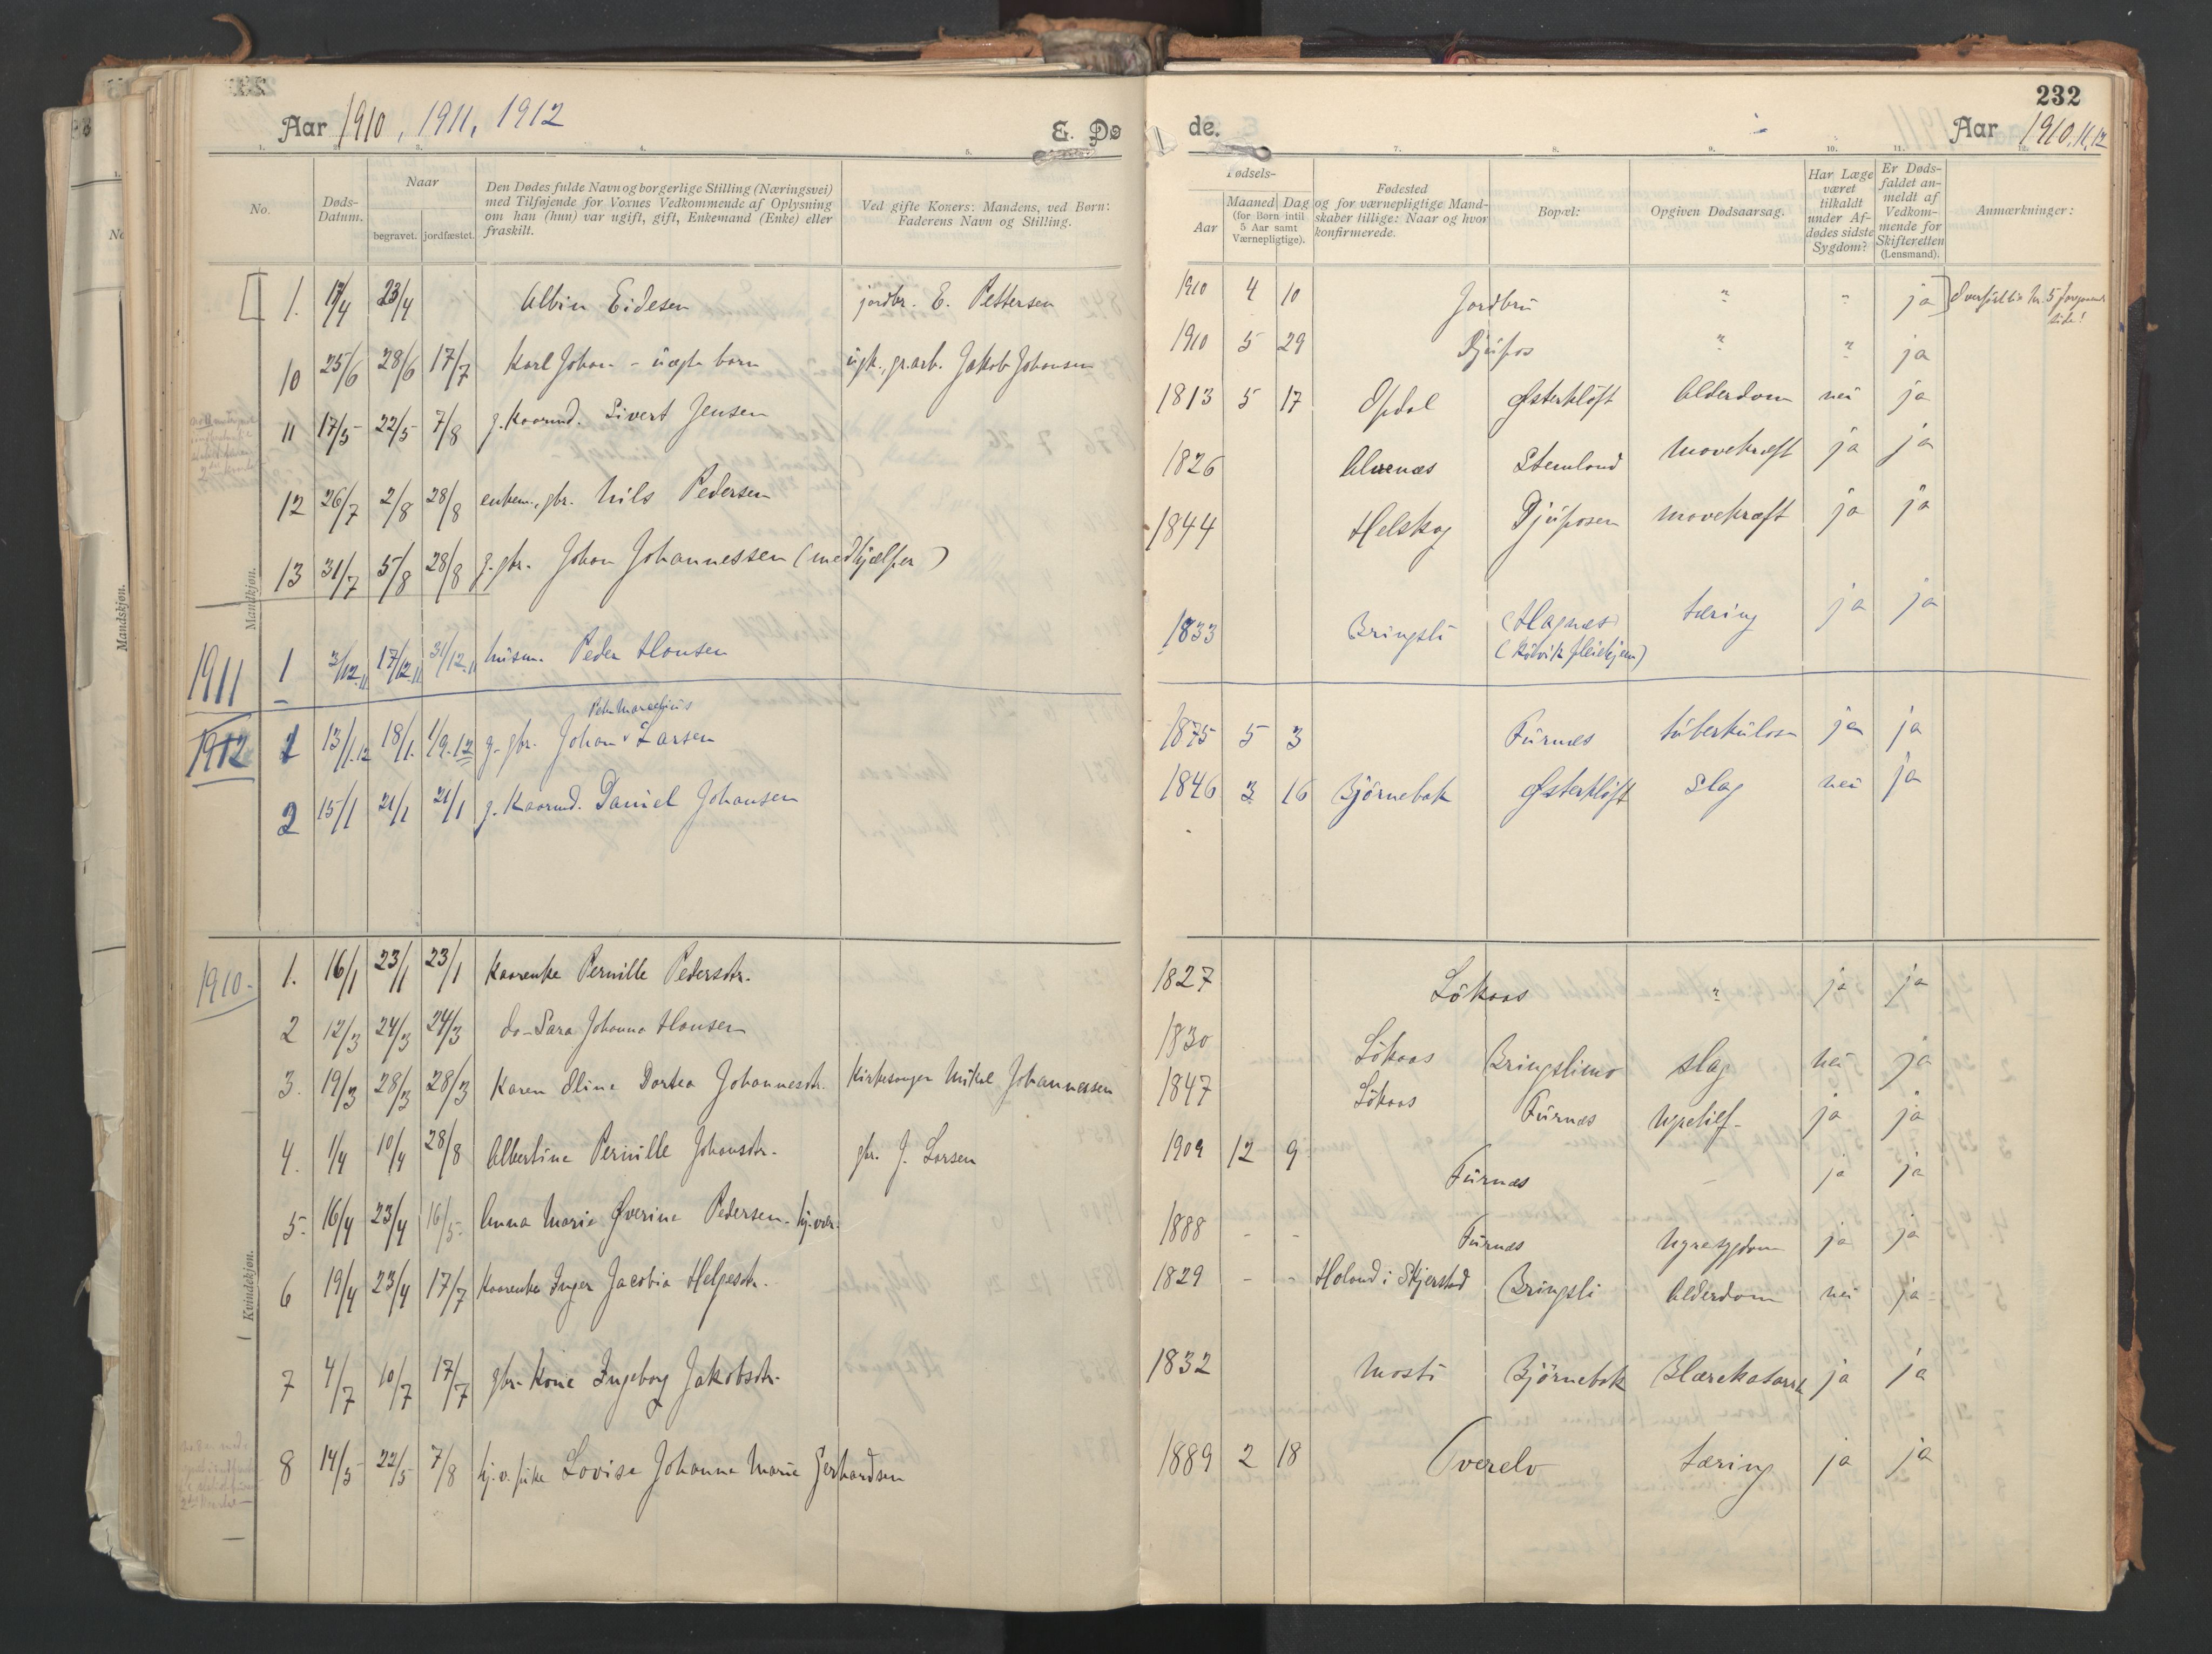 232
Aar 1910, 1911, 1912 E. Dø
de. Aar 1910, 11, 12
1. 2. 3. 4. 5.
7. 8. 9. 10. 11. 12.
No. Døds-Datum. Naar begravet. jordfæstet. Den Dødes fulde Navn og borgerlige Stilling (Næringsvei) med Tilføjende for Voxnes Vedkommende af Oplysning om han (hun) var ugift, gift, Enkemand (Enke) eller fraskilt. Ved gifte Koners: Mandens, ved Børn: Faderens Navn og Stilling.
Fødsels- Aar Maaned Dag (for Børn intil 5 Aar samt Værnepligtige). Fødested og for værnepligtige Mandskaber tillige: Naar og hvor konfirmerede. Bopæl: Opgiven Dødsaarsag. Har Læge været tilkaldt under Afdødes sidste Sygdom? Er Dødsfaldet anmeldt af Vedkommende for Skifteretten (Lensmand). Anmærkninger:
Mandkjøn.
1. 17/4 23/4 Albin Eidesen jordbr. E. Pettersen 1910 4 10 Jordbru " " ja
10 25/6 28/6 17/7 Karl Johan - uægte barn ugk., gr.arb. Jakob Johansen 1910 5 29 Djupos " " ja
11 17/5 22/5 7/8 g. Kaarmd. Sivert Jensen 1813 5 17 Opdal Østerkløft Alderdom nei ja
12 26/7 2/8 28/8 enkem., gbr. Nils Pedersen 1826 Alvenæs Stemland Mavekræft ja ja
13 31/7 5/8 28/8 g. gbr. Johan Johannessen (medhjælper) 1844 Helskog Djuposen mavekræft ja ja
1911 1 3/12 11 17/12 11 31/12 11 husm. Peder Hansen 1833 Bringsli (Hagnes) tæring ja ja
(Kolvik pleiehjem)
Peder Marselius
1912 1 13/1 12 18/1. 1/9. 12 g. gbr. Johan Larsen 1875 5 3 Furnes tuberkulose ja ja
2 15/1 21/1 21/1 g. Kaarmd. Daniel Johansen 1846 3 16 Bjørnebak Østerkløft Slag nei ja
Kvindekjøn.
1910. 1. 16/1 23/1 23/1 Kaarenke Pernille Pedersdtr. 1827 Løkaas " ja ja
2 12/3 24/3 24/3 do - Sara Johanna Hansen 1830 Løkaas Bringslimo slag nei ja
3. 19/3 28/3 28/3 Karen Eline Dortea Johannesdtr. Kirkesanger Mikal Johannessen 1847 Løkaas Furnes Nyrelid. ja ja
4. 1/4 10/4 28/8 Albertine Pernille Johansdtr. gbr. J. Larsen 1909 12 9 Furnes - ja ja
5. 16/4 23/4 16/5 Anna Marie Øverine Pedersen - hj.vær. 1888 - - Furnes Nyresygdom ja ja
6 19/4 23/4 17/7 Kaarenke Inger Jacobia Helgesdtr. 1829 - - Holand i Skjerstad Bringsli Alderdom nei ja
7 4/7 10/7 17/7 gbr. Kone Ingeborg Jakobsdtr. 1832 Mosti Bjørnebak Blærekatarrh ja ja
8 14/5 22/5 7/8 hj. v. pike Lovise Johanna Marie Gerhardsen 1889 2 18 Tverelv tæring ja ja
Mandskjøn.